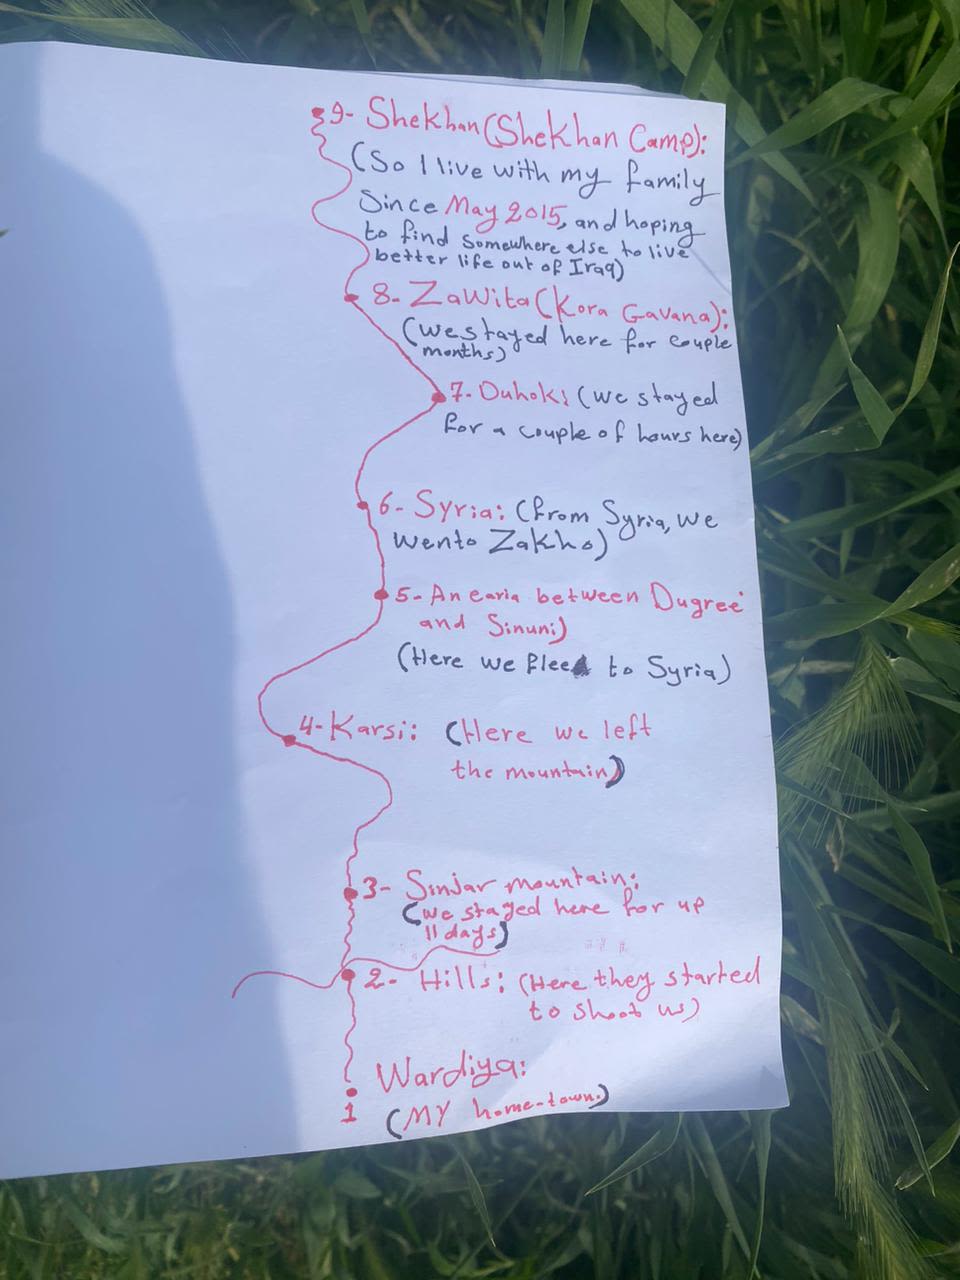 9- Shekhan (Shekhan Camp):
(So I live with my family
Since May 2015, and hoping
to find somewhere else to live
better life out of Iraq)
8- Zawita (Kora Gavana):
(we stayed here for couple
months)
7- Duhok: (we stayed
for a couple of hours here)
6- Syria: (from Syria, we
wento Zakho)
5- An earia between Dugree
and Sinuni)
(Here we fleed to Syria)
4- Karsi: (Here we left
the mountain)
3- Sinjar mountain:
(we stayed here for up
11 days)
2- Hills: (Here they started
to shoot us)
Wardiya:
1 (MY home-town.)